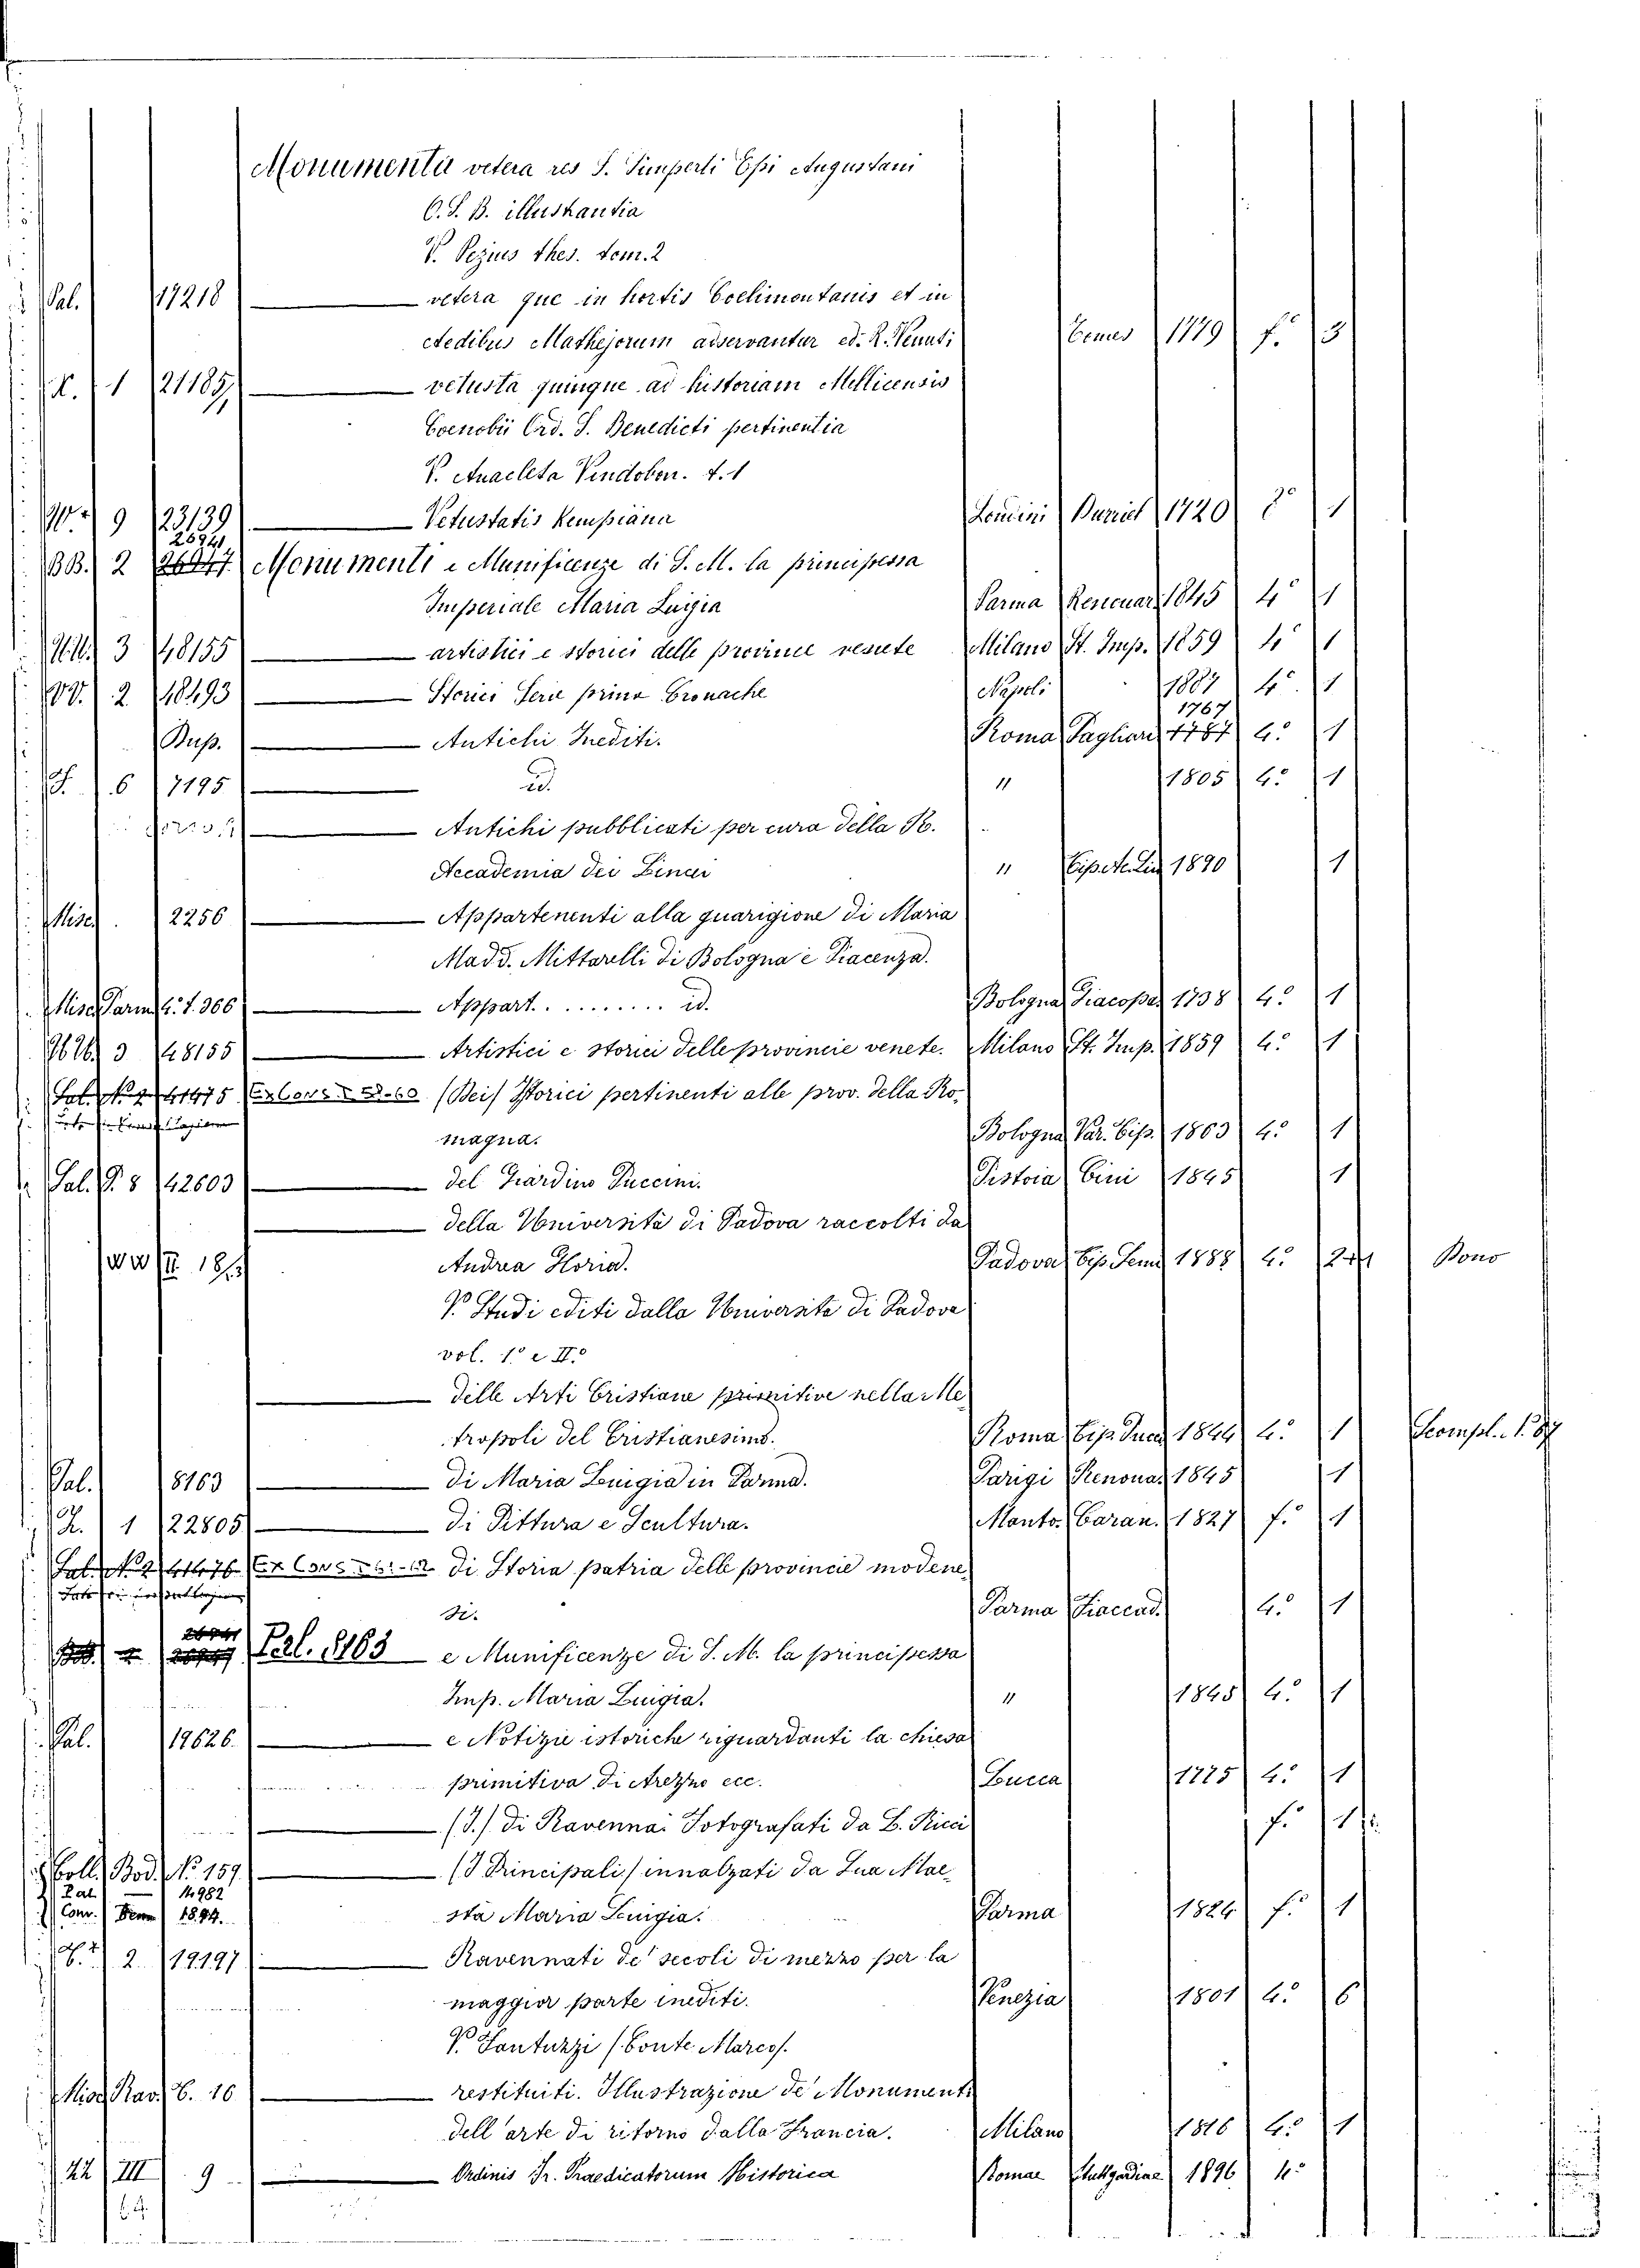 Monumenta vetera res S. Simperti Epi Augustani
O. S. B. illustrantia
V. Pezius thes. tom. 2
Pal. 17218 vetera que in hortis Coelimontanis et in
Aedibus Mathejorum adservantur ed. R. Venuti 1779 f.° 3
1 21185 vetusta quinque ad historiam Mellicensis
Coenobii Ord. S. Benedicti pertinentia
V. Anacleta Vindobon. t. 1
9 23139 Vetustatis Kempiana Londini 1720 8° 1
26941
BB. 2 Monumenti e Munificenze di S. M. la principessa
Imperiale Maria Luigia Parma 1845 4° 1
3 48155 artistici e storici delle province venete Milano St. Imp. 1859 4° 1
2 48493 Storici Serie prima Cronache Napoli 1887 4° 1
1767
Bup. Antichi Inediti. Roma Pagliari 1787 4° 1
6 7195 id. " 1805 4° 1
Antichi pubblicati per cura della R.
Accademia dei Lincei " 1890 1
Misc. 2256 Appartenenti alla guarigione di Maria
Madd. Mittarelli di Bologna e Piacenza.
Misc. Parm. 4° 1.366 Appart. ......... id. Bologna 1738 4° 1
3 48155 Artistici e storici delle provincie venete. Milano St. Imp. 1859 4° 1
41475 Ex Cons. (Beis Istorici pertinenti alle prov. della Ro-
magna. Bologna Var. Tip. 1863 4° 1
Sal. P. 8 42603 del Giardino Puccini. Pistoia Cini 1845 1
della Università di Padova raccolti da
Andrea Gloria. Padova Tip. Sem. 1888 4° Dono
V. Studi editi dalla Università di Padova
vol. 1° e II°
delle Arti Cristiane primitive nella Me-
tropoli del Cristianesimo. Roma 1844 4° 1
Pal. 8163 di Maria Luigia in Parma. Parigi Renouar. 1845 1
1 22805 di Pittura e Scultura. Manto. Caran. 1827 f.° 1
Ex Cons di Storia patria delle provincie modene-
si. Parma Fiaccad. 4° 1
Pal. 8163 e Munificenze di S. M. la principessa
Imp. Maria Luigia. " 1845 4° 1
Pal. 19626 e Notizie istoriche riguardanti la chiesa
primitiva di Arezzo ecc. Lucca 1775 4° 1
(I.) di Ravenna. Fotografati da L. Ricci f.°
Coll. Bod. N° 159 (I Principali) innalzati da Sua Mae-
Pal. 14982
Conv. 1844. sta Maria Luigia. Parma 1824 f.° 1
2 19197 Ravennati de' secoli di mezzo per la
maggior parte inediti. Venezia 1801 4° 6
V. Fantuzzi (Conte Marco).
Misc. Rav. C. 10 restituiti. Illustrazione de' Monumenti
dell'arte di ritorno dalla Francia. Milano 1816 4° 1
22 III 9 Ordinis Fr. Praedicatorum Historica Romae Stuttgardiae 1896 4°